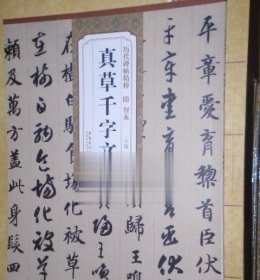 平章愛育黎首臣伏
平章愛育黎首臣伏
歸王鳴
历代碑帖精粹 隋 智永
真草千字文
在樹白駒食場化被
在樹白駒食場化被草
賴及萬方蓋此身髮四